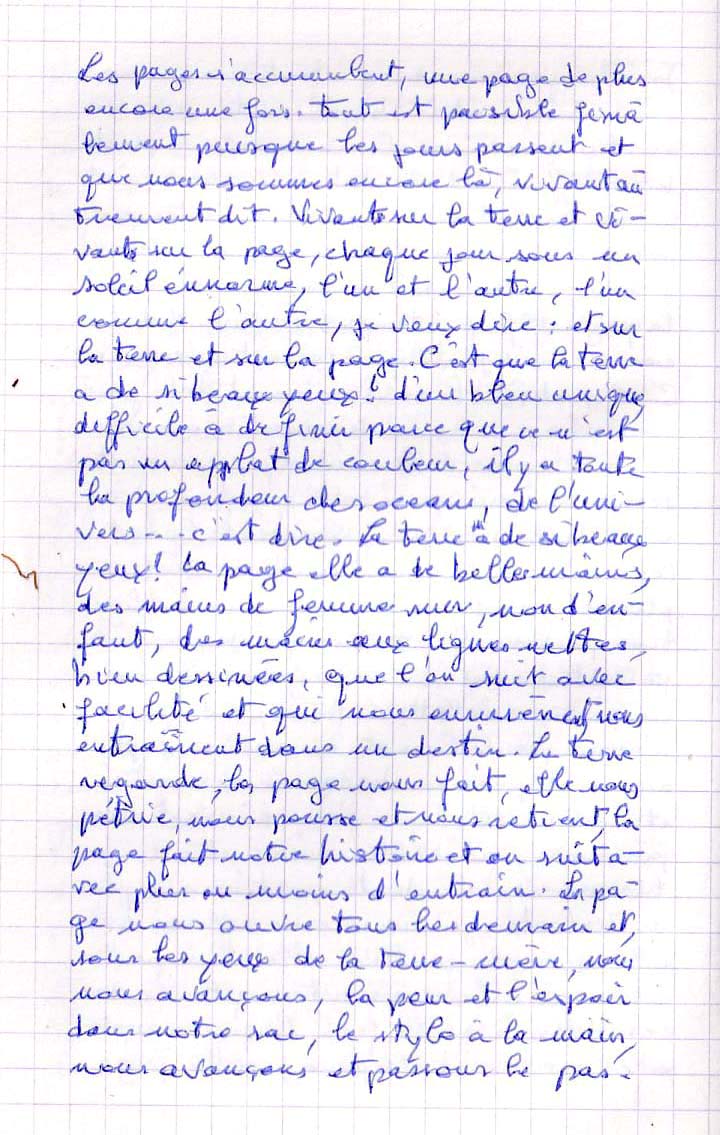 Les pages s'accumulent, une page de plus
encore une fois. tout est possible géniâ
lement puisque les jours passent et
que nous sommes encore là, vivant au
trement dit. Vivants sur la terre et vi-
vants sur la page, chaque jour sous un
soleil énnorme, l'un et l'autre, l'un
comme l'autre, je veux dire : et sur
la terre et sur la page. C'est que la terre
a de si beaux yeux ! d'un bleu unique,
difficile à définir parce que ce n'est
pas un applat de couleur, il y a toute
la profondeur des oceans, de l'uni-
vers... c'est dire. La terre a de si beaux
yeux ! La page elle a de belles mains,
des mains de femme mur, non d'en-
fant, des mains aux lignes nettes,
bien dessinées, que l'on suit avec
facilité et qui nous emmènent nous
entraînent dans un destin. La terre
regarde, la page nous fait, elle nous
pétrie, nous pousse et nous retient, la
page fait notre histoire et on suit a-
vec plus ou moins d'entrain. La pa-
ge nous ouvre tous les demain et,
sous les yeux de la terre-mère, nous
nous avançons, la peur et l'espoir
dans notre sac, le stylo à la main,
nous avançons et passons le pas.